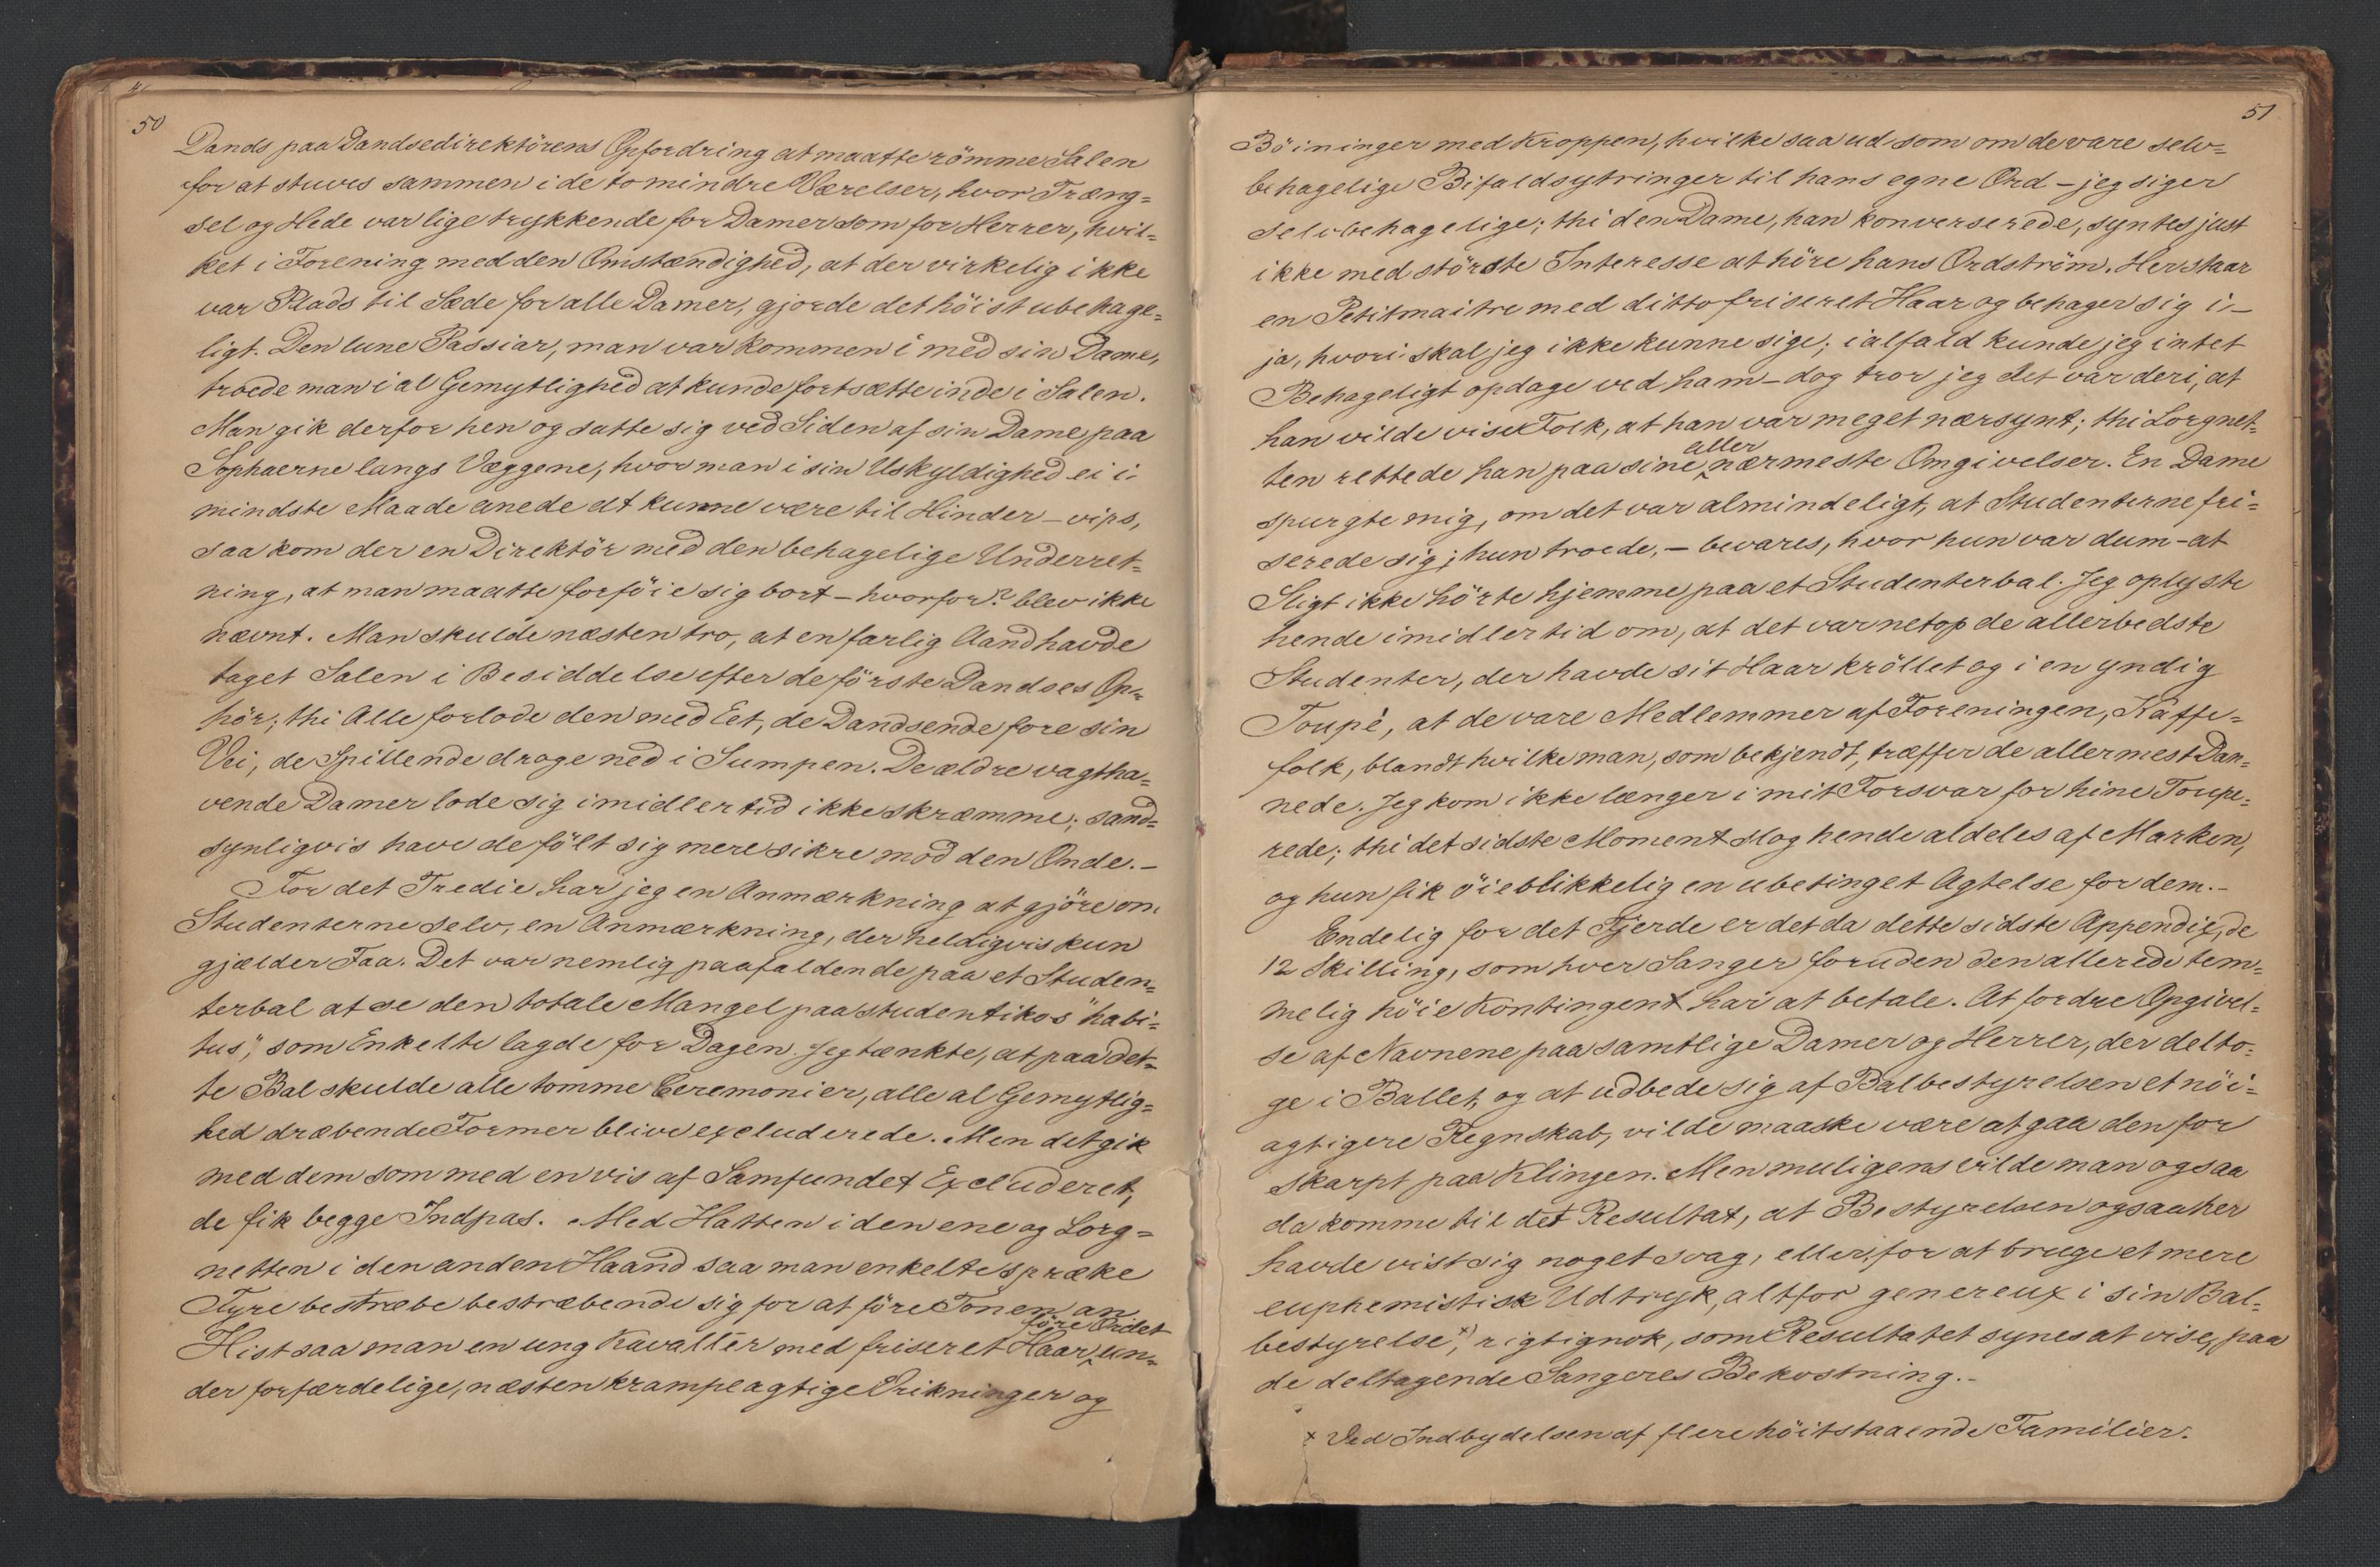 50
Dands paa Dandsedirektörens Opfordring at maatte römme Salen
for at stuves sammen i de to mindre Værelser, hvor Træng=
sel og Hede var lige trykkende for Damer som for Herrer, hvil=
ket i Forening med den Omstændighed, at der virkelig ikke
var Plads til Sæde for alle Damer, gjorde det höist ubehage=
ligt. Den lune Passiar, man var kommen i med sin Dame,
troede man i al Gemytlighed at kunde fortsætte inde i Salen.
Man gik derfor hen og satte sig ved Siden af sin Dame paa
Sophaerne langs Væggene, hvor man i sin Uskyldighed ei i
mindste Maade anede at kunne være til Hinder – vips,
saa kom der en Direktör med den behagelige Underret=
ning, at man maatte forföie sig bort – hvorfor? blev ikke
nævnt. Man skulde næsten tro, at en farlig Aand havde
taget Salen i Besiddelse efter de förste Dandses Op=
hör; thi Alle forlode den med Eet, de Dandsende fore sin
Vei, de Spillende droge ned i Sumpen. De ældre vagtha=
vende Damer lode sig imidlertid ikke skræmme; sand=
synligvis have de fölt sig mere sikre mod den Onde. –
For det Tredie har jeg en Anmærkning at gjöre om
Studenterne selv, en Anmærkning, der heldigvis kun
gjælder Faa. Det var nemlig paafaldende paa et Studen=
terbal at se den totale Mangel paa studentikos "habi=
tus", som Enkelte lagde for Dagen. Jeg tænkte, at paa det=
te Bal skulde alle tomme Ceremonier, alle al Gemytlig=
hed dræbende Former blive excluderede. Men det gik
med dem som med en vis af Samfundet Excluderet,
de fik begge Indpas. Med Hatten i den ene og Lorg=
netten i den anden Haand saa man enkelte spræke
Fyre bestræbe bestræbende sig for at före Tonen an
före Ordet
Hist saa man en ung Kavallér med friseret Haar un=
der forfærdelige, næsten krampeagtige Vrikninger og
51
Böininger med Kroppen, hvilke saa ud som om de vare selv=
behagelige Bifaldsytringer til hans egne Ord – jeg siger
selvbehagelige; thi den Dame, han konverserede, syntes just
ikke med störste Interesse at höre hans Ordström. Her staar
en Petitmaitre med ditto friseret Haar og behager sig i –
ja, hvori skal jeg ikke kunne sige; ialfald kunde jeg intet
Behageligt opdage ved ham – dog tror jeg det var deri, at
han vilde vise Folk, at han var meget nærsynt; thi Lorgnet=
aller
ten rettede han paa sine nærmeste Omgivelser. En Dame
spurgte mig, om det var almindeligt, at Studenterne fri=
serede sig; hun troede, – bevares, hvor hun var dum – at
Sligt ikke hörte hjemme paa et Studenterbal. Jeg oplyste
hende imidlertid om, at det var netop de allerbedste
Studenter, der havde sit Haar kröllet og i en yndig
Toupè, at de vare Medlemmer af Foreningen, Kaffe=
folk, blandt hvilke man, som bekjendt, træffer de allermest Dan=
nede. Jeg kom ikke længer i mit Forsvar for hine Toupe=
rede; thi det sidste Moment slog hende aldeles af Marken,
og hun fik öieblikkelig en ubetinget Agtelse for dem. –
Endelig for det Fjerde er det da dette sidste Appendix, de
12 Skilling, som hver Sanger foruden den allerede tem=
melig höie Kontingent har at betale. At fordre Opgivel=
se af Navnene paa samtlige Damer og Herrer, der delto=
ge i Ballet, og at udbede sig af Balbestyrelsen et nöi=
agtigere Regnskab, vilde maaske være at gaa den for
skarpt paa Klingen. Men muligens vilde man ogsaa
da komme til det Resultat, at Bestyrelsen ogsaa her
havde vist sig noget svag, eller, for at bruge et mere
euphemistisk Udtryk, altfor genereux i sin Bal=
bestyrelse x), rigtignok, som Resultatet synes at vise, paa
de deltagende Sangeres Bekostning. –
x Ved Indbydelsen af flere höitstaaende Familier.